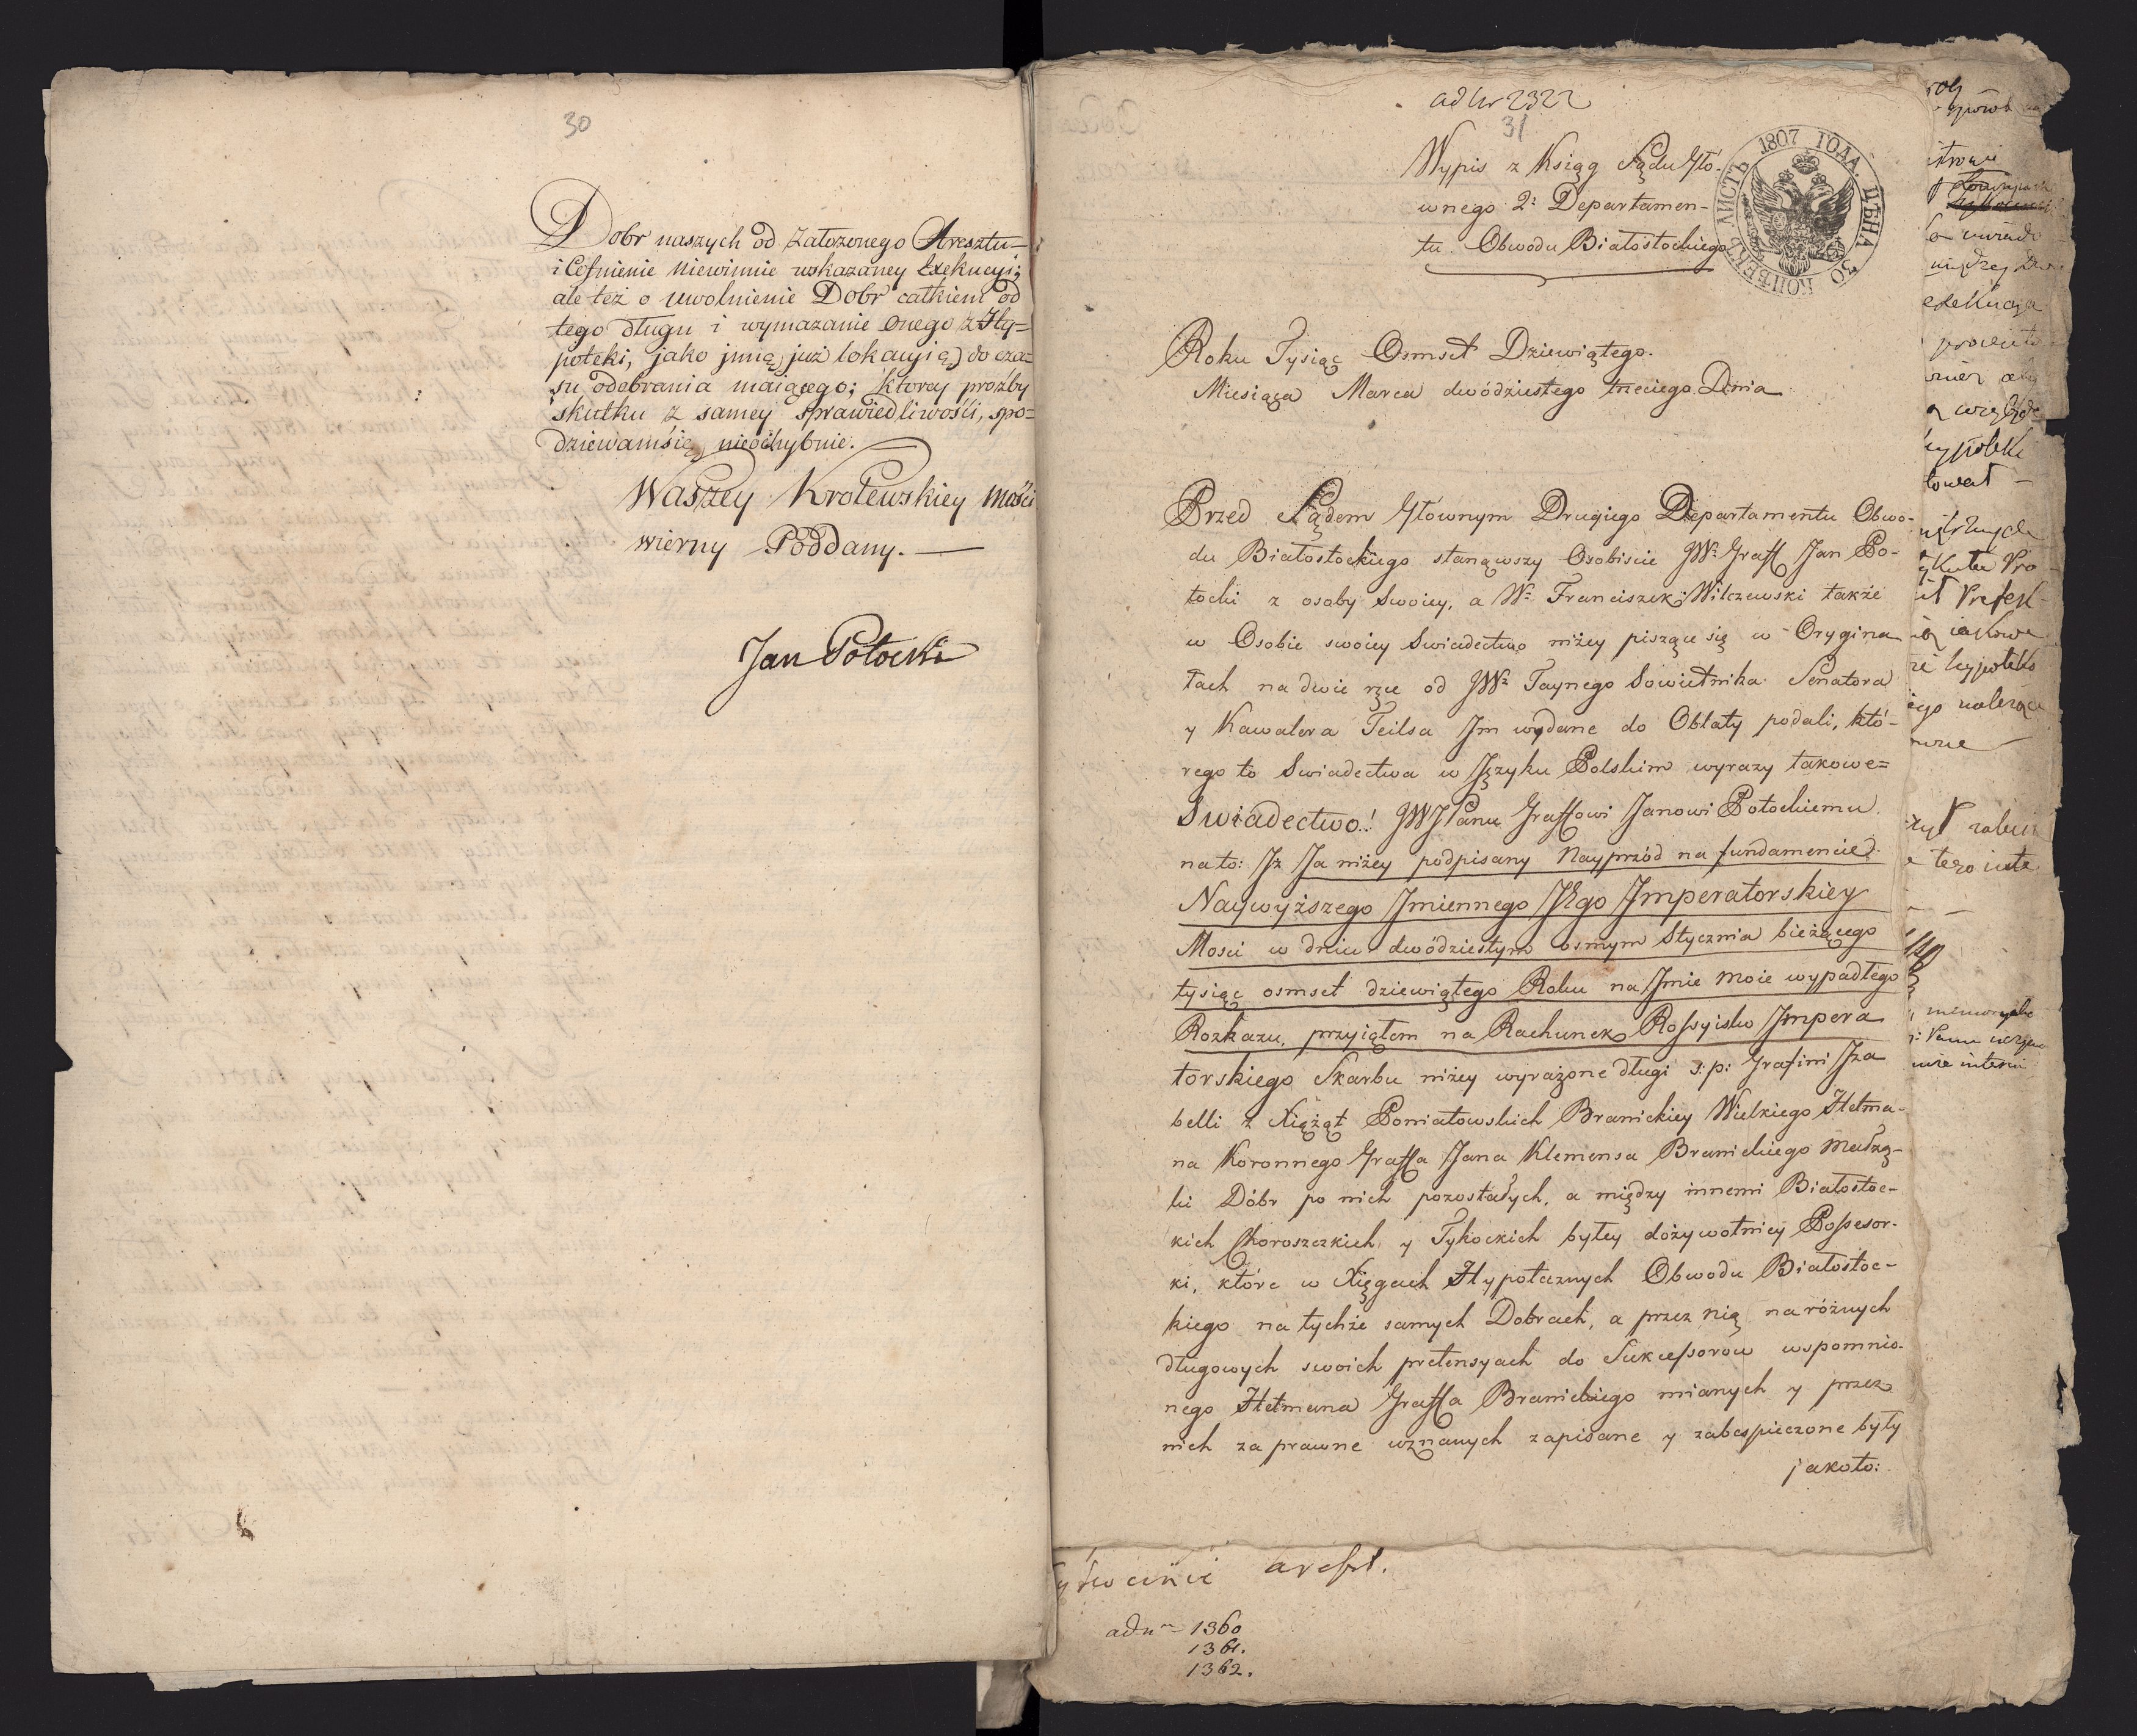 30
Dobr naszych od założonego Aresztu-
i Cofnienie niewinnie wskazaney Exekucyi;
ale też o uwolnienie Dobr całkiem od
tego długu i wymazanie onego z Hy=
poteki, jako inną już lokacyią do cza=
su odebrania maiącego; ktorey prozby
skutku z samey sprawiedliwości, spo=
dziewamsię nieochybnie.
Waszey Krolewskiey Mości
wierny Poddany.
Jan Potocki
ad Nr 2322
31
Wypis z Ksiąg Sądu Głó-
wnego 2: Departamen-
tu Obwodu Białostockiego
ЛИСТЪ 1807 ГОДА. ЦѢНА 30 КОПѢЕКЪ
Roku Tysiąc Osmset Dziewiątego.
Miesiąca Marca dwódziestego trzeciego Dnia
Przed Sądem Głównym Drugiego Departamentu Obwo-
du Białostockiego stanąwszy Osobiscie JW: Graff Jan Po-
tocki z osoby Swoiey, a W: Franciszek Wilczewski także
w Osobie swoiey Swiadectwo niżey piszące się w Orygina
łach na dwie rzce od JW: Taynego Sowietnika Senatora
y Kawalera Teilsa Jm wydane do Oblaty podali, któ-
rego to Swiadectwa w Języku Polskim wyrazy takowe=
Swiadectwo! JWJPanu Graffowi Janowi Potockiemu
na to: Jż Ja niżey podpisany Nayprzód na fundamencie
Naywyższego Jmiennego JEgo Jmperatorskiey
Mosci w dniu dwódziestym osmym Stycznia bieżącego
tysiąc osmset dziewiątego Roku na Jmie moie wypadłego
Rozkazu, przyiąłem na Rachunek Rossyisko Jmpera
torskiego Skarbu niżey wyrażone długi ś: p: Grafini Jza
belli z Xiążąt Poniatowskich Branickiey Wielkiego Hetma-
na Koronnego Graffa Jana Klemensa Branickiego Małżą-
ki Dóbr po nich pozostałych, a między innemi Białostoc-
kich Choroszczkich y Tykockich byłey dożywotniey Possesor-
ki, które w Xięgach Hypotecznych Obwodu Białostoc-
kiego na tychże samych Dobrach, a przez nią na różnych
długowych swoich pretensyach do Sukcessorów wspomnio-
nego Hetmana Graffa Branickiego mianych y przez
nich za prawne uznanych zapisane y zabespieczone były
jakoto:
areszt.
ad nr 1360
1361.
1362.
exekucya
hypoteki